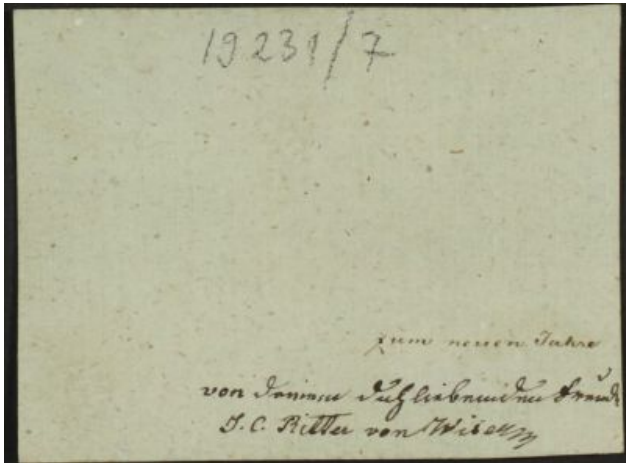 19231/7
zum neuen Jahre
von deinem dich liebenden Freund
J. C. Ritter von